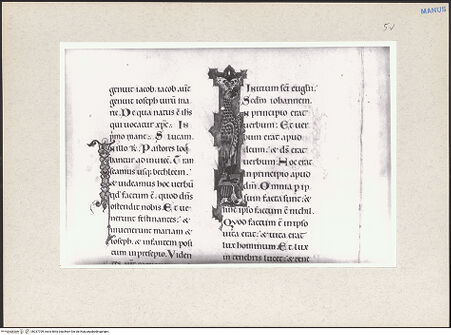 MANUS
5v
genuit iacob. iacob autē
genuit ioseph uirū ma
rie. De qua natus ē ihs
qui uocatur xpc. In
S. lucam.
illo t̄. Pastores loq̄
bantur ad inuicē. Tran
seamus usq; bethleem.
& uideamus hoc uerbū
qd̄ factum ē. quod dn̄s
ostendit nobis. Et ue
nerunt festinantes. &
inuenerunt mariam &
ioseph. & infantem posi
tum in presepio. Viden
Initium sc̄i eugl̄ii.
Scd̄m iohannem.
In principio erat
uerbum. Et uer
bum erat apud
deum. & ds̄ erat
uerbum. Hoc erat
in principio apud
dm̄. Omnia p ip
sum facta sunt. &
sine ipso factum ē nichil.
Quod factum ē in ipso
uita erat. & uita erat
lux hominum. Et lux
in tenebris lucet. & tene